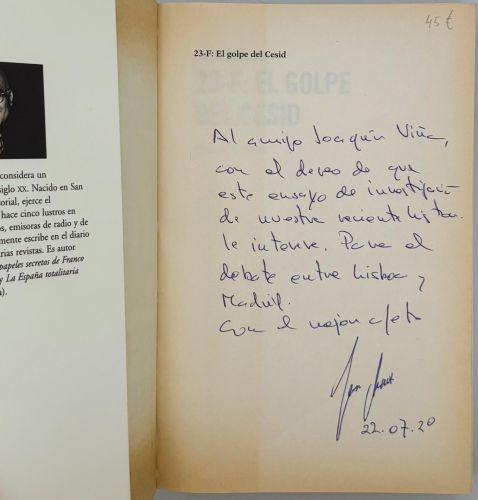 considera un
siglo XX. Nacido en San
orial, ejerce el
hace cinco lustros en
s, emisoras de radio y de
mente escribe en el diario
arias revistas. Es autor
papeles secretos de Franco
y La España totalitaria
).
45 €
23-F: El golpe del Cesid
23-F: EL GOLPE
DEL CESID
Al amigo Joaquín Viña,
con el deseo de que
este ensayo de investigación
de nuestra reciente historia
le interese. Para el
debate entre Lisboa y
Madrid.
Con el mejor afecto
22.07.20